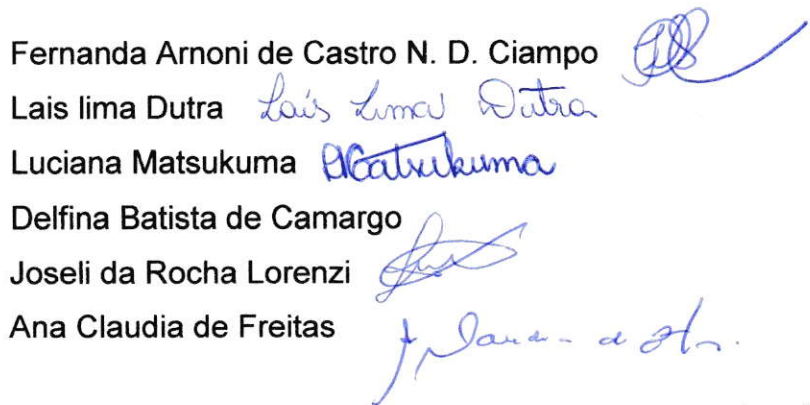 Fernanda Arnoni de Castro N. D. Ciampo
Lais lima Dutra Lais Lima Dutra
Luciana Matsukuma Matsukuma
Delfina Batista de Camargo
Joseli da Rocha Lorenzi
Ana Claudia de Freitas